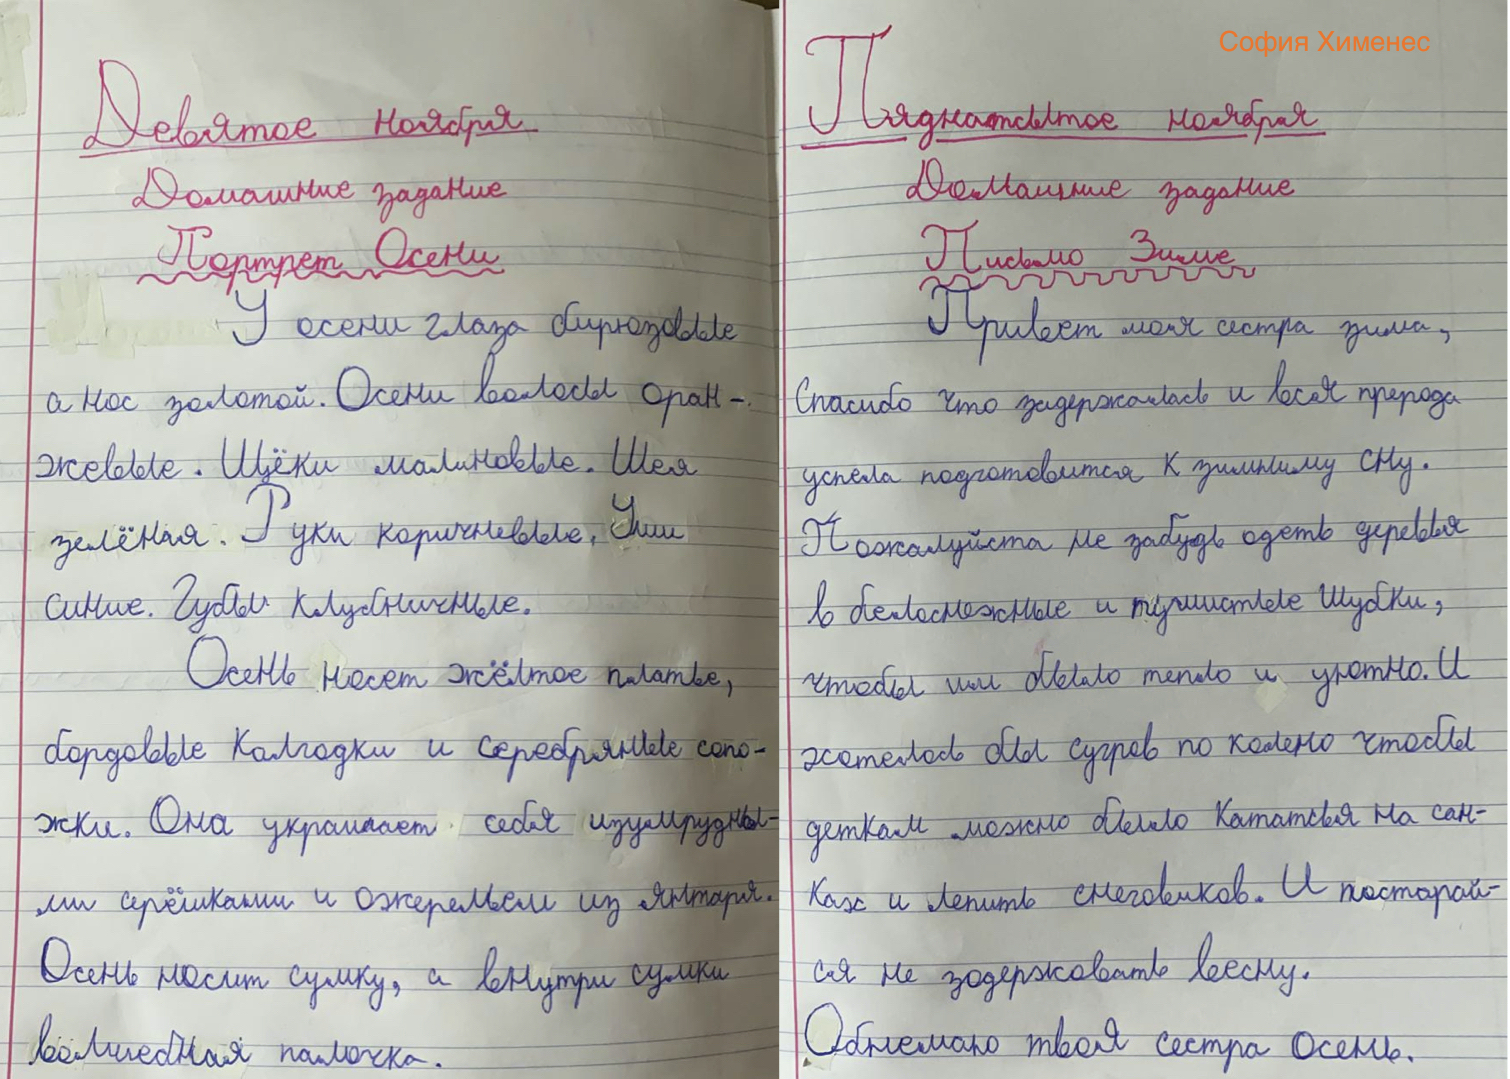 Девятое ноября
Домашние задание
Портрет Осени
У осени глаза бирюзовые
а нос золотой. Осени волосы оран-
жевые. Щёки малиновые. Шея
зелёная. Руки коричневые, Уши
синие. Губы клубничные.
Осень носет жёлтое платье,
бордовые колгодки и серебряные сопо-
жки. Она украшает себя изумрудны-
ми серёшками и ожерельем из янтаря.
Осень носит сумку, а внутри сумки
волшебная палочка.
София Хименес
Пяднатсытое ноября
Домашние задание
Письмо Зиме
Привет моя сестра зима,
Спасибо что задержалась и вся прерода
успела подготовится к зимниму сну.
Пожалуйста не забудь одеть деревья
в белоснежные и пушистые шубки,
чтобы им было тепло и уютно. И
хотелось бы сугров по колено чтобы
деткам можно было кататься на сан-
ках и лепить снеговиков. И посторай-
ся не зодержовать весну.
Обнемаю твоя сестра осень.